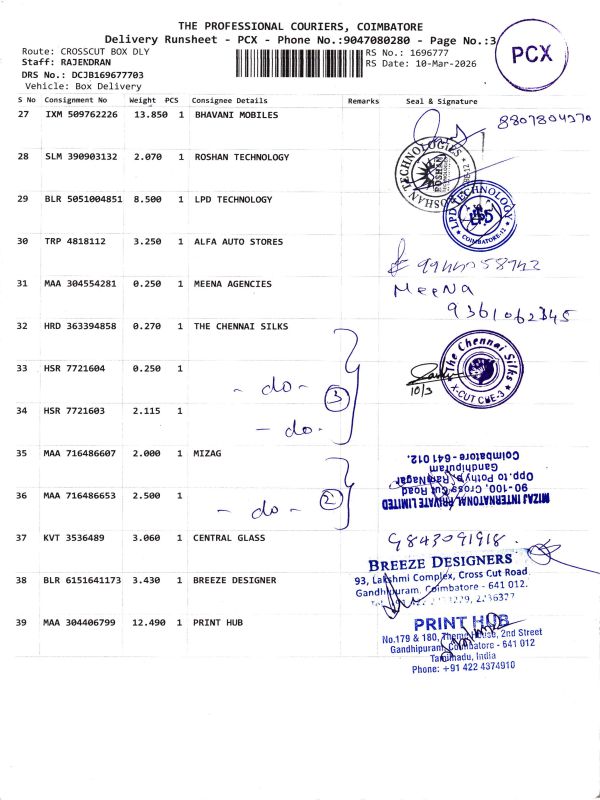 THE PROFESSIONAL COURIERS, COIMBATORE
Delivery Runsheet - PCX - Phone No.:9047080280 - Page No.:3
PCX
Route: CROSSCUT BOX DLY
RS No.: 1696777
Staff: RAJENDRAN
RS Date: 10-Mar-2026
DRS No.: DCJB169677703
Vehicle: Box Delivery
S No Consignment No Weight PCS Consignee Details Remarks Seal & Signature
27 IXM 509762226 13.850 1 BHAVANI MOBILES
8807804370
28 SLM 390903132 2.070 1 ROSHAN TECHNOLOGY
ROSHAN TECHNOLOGIES
29 BLR 5051004851 8.500 1 LPD TECHNOLOGY
LPD TECHNOLOGY
LPD
COIMBATORE-12
30 TRP 4818112 3.250 1 ALFA AUTO STORES
31 MAA 304554281 0.250 1 MEENA AGENCIES
MeeNa
9361062345
32 HRD 363394858 0.270 1 THE CHENNAI SILKS
The Chennai Silks
X-CUT CBE-3
10/3
33 HSR 7721604 0.250 1
- do -
3
34 HSR 7721603 2.115 1
- do -
35 MAA 716486607 2.000 1 MIZAG
MIZAJ INTERNATIONAL PRIVATE LIMITED
90-100, Cross Cut Road
Opp.to Pothys, Ram Nagar
Gandhipuram
Coimbatore - 641 012.
36 MAA 716486653 2.500 1
- do -
2
37 KVT 3536489 3.060 1 CENTRAL GLASS
9843091918.
38 BLR 6151641173 3.430 1 BREEZE DESIGNER
BREEZE DESIGNERS
93, Lakshmi Complex, Cross Cut Road.
Gandhipuram, Coimbatore - 641 012.
39 MAA 304406799 12.490 1 PRINT HUB
PRINT HUB
No.179 & 180, Themu House, 2nd Street
Gandhipuram, Coimbatore - 641 012
Tamilnadu, India
Phone: +91 422 4374910